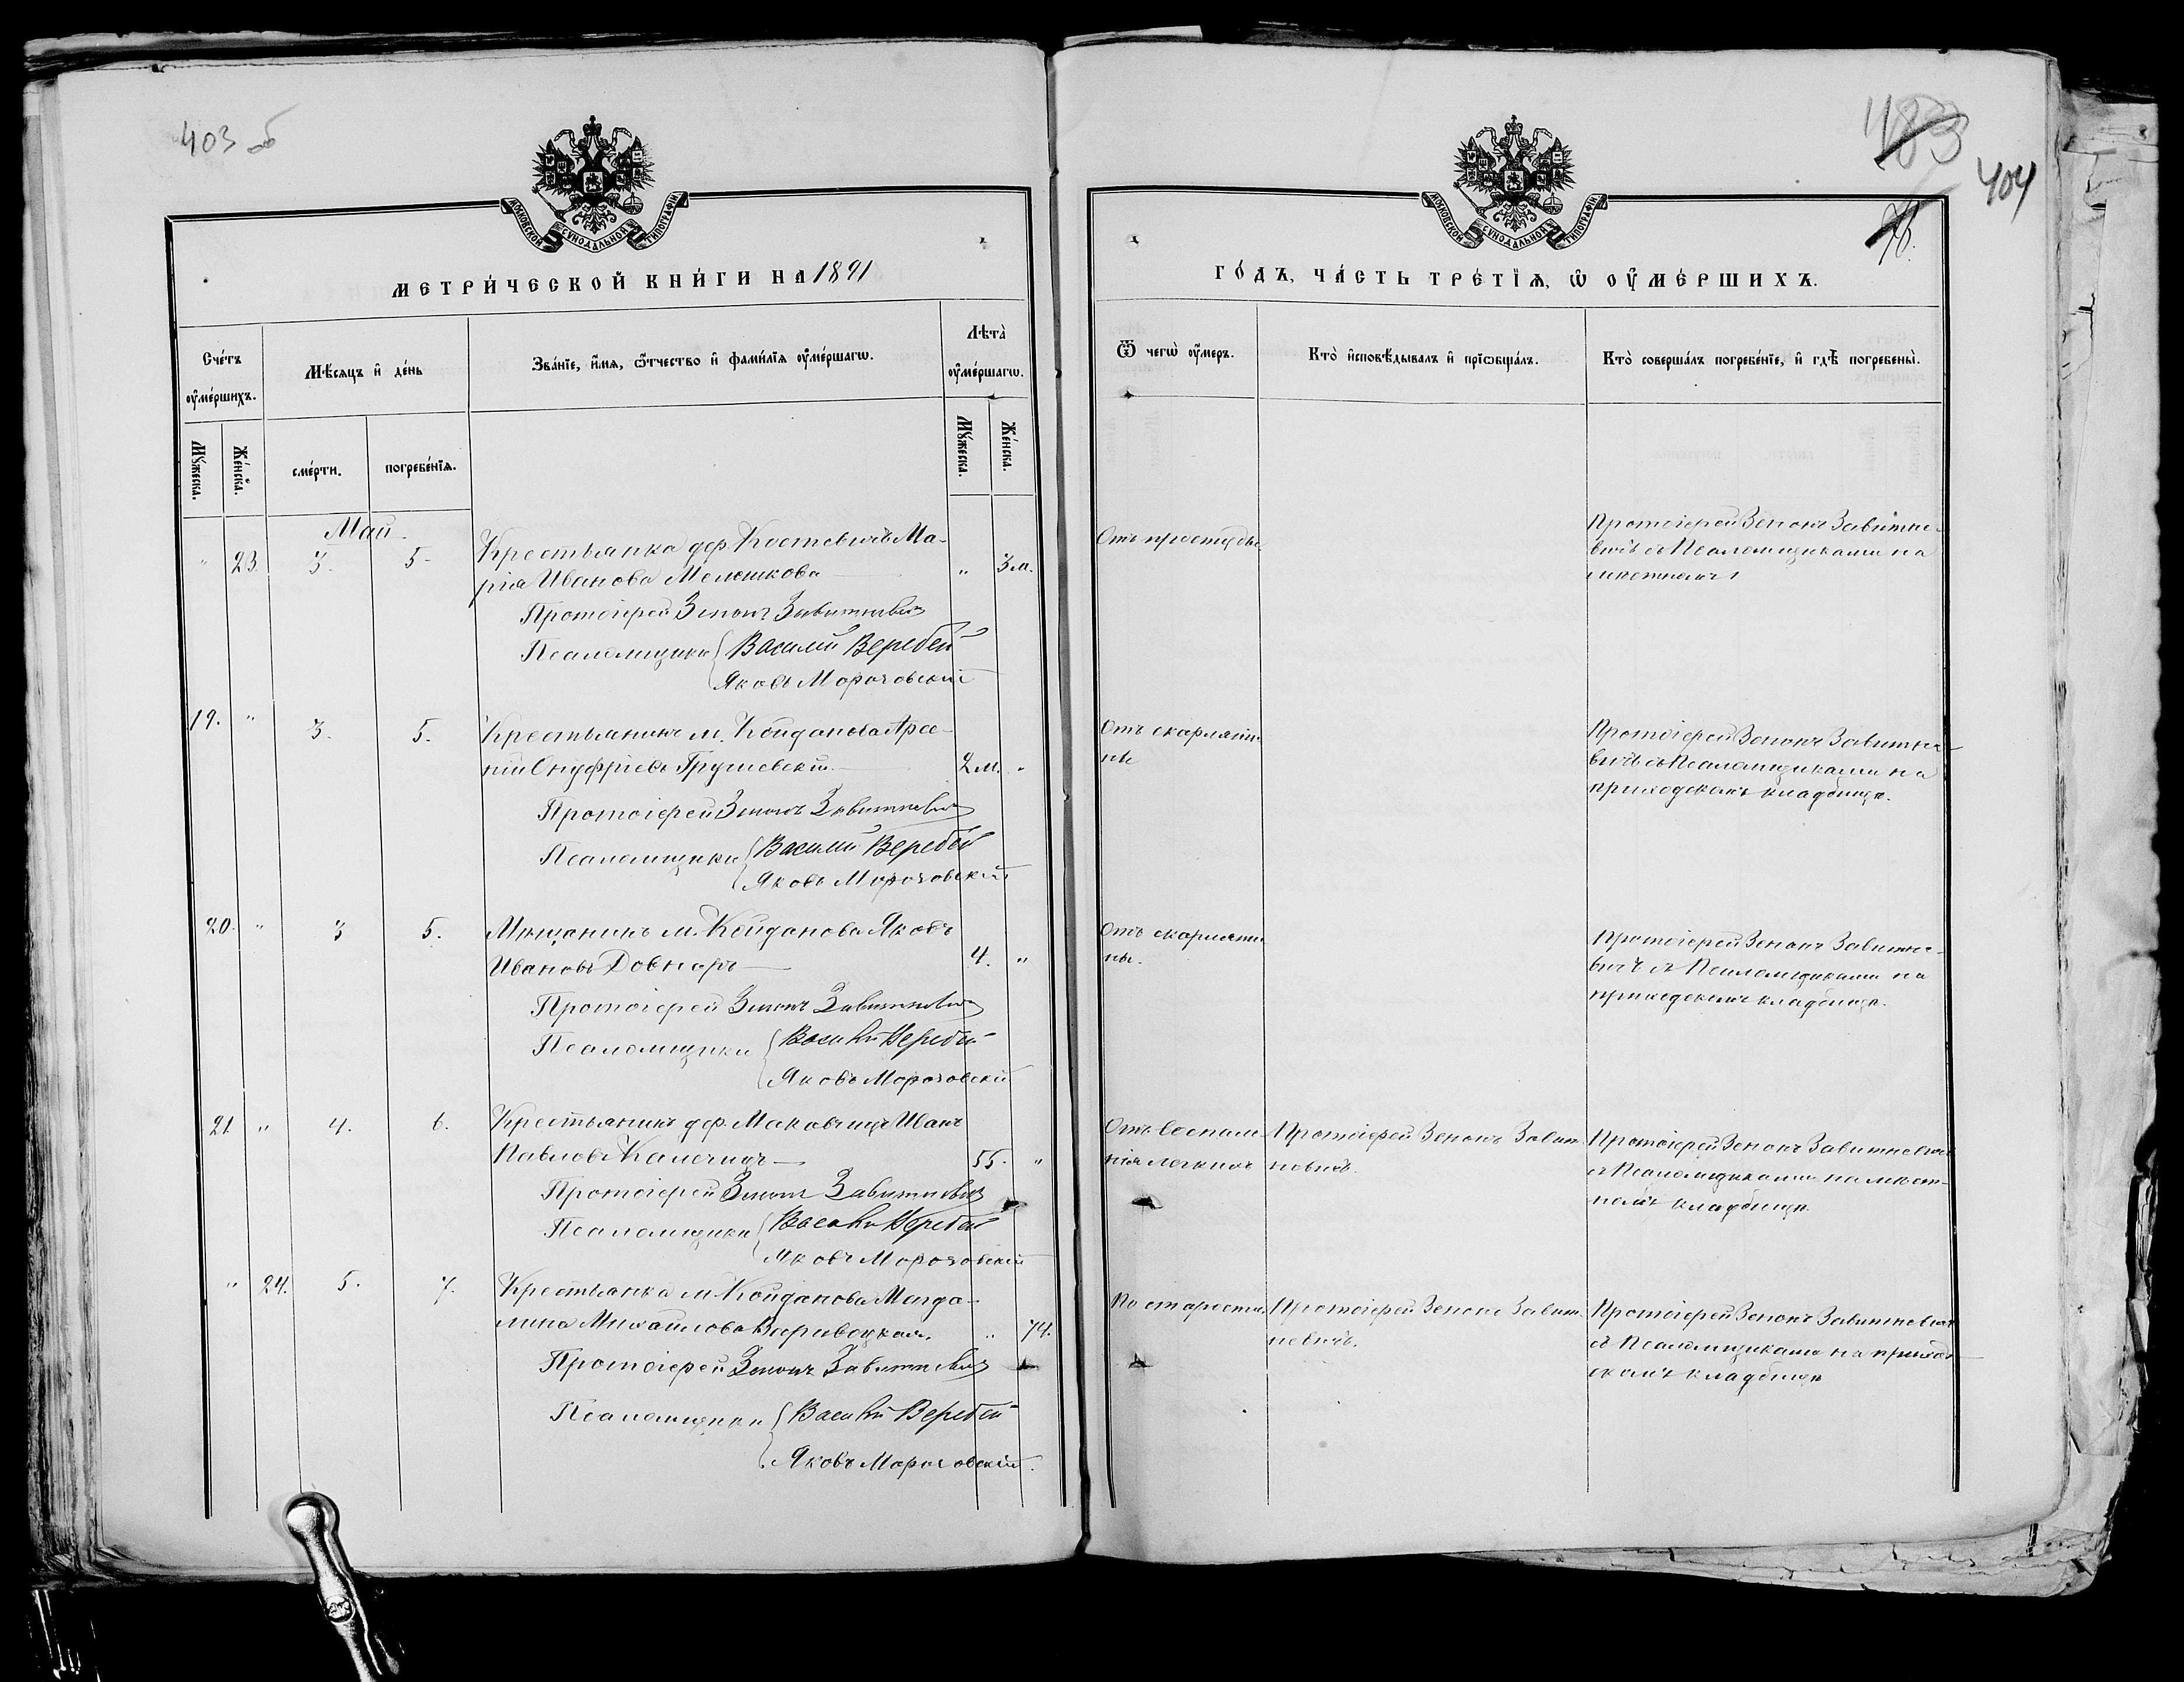 403 об
483
404
МОСКОВСКОЙ СѴНОДАЛЬНОЙ ТИПОГРАФІИ
МОСКОВСКОЙ СѴНОДАЛЬНОЙ ТИПОГРАФІИ
МЕТРИ́ЧЕСКОЙ КНИ́ГИ НА 1891
ГО́ДЪ, ЧА́СТЬ ТРЕ́ТІѦ, Ѡ҆ ОУ҆МЕ́РШИХЪ.
Сче́тъ оу҆ме́ршихъ.
Мѣ́сяцъ и҆ де́нь
Зва́нїе, и҆́мя, ѻ҆́тчество и҆ фами́лїя оу҆ме́ршагѡ.
Лѣта̀ оу҆ме́ршагѡ.
Ѿ чегѡ̀ оу҆́меръ.
Кто̀ и҆сповѣ́дывалъ и҆ прїѡбща́лъ.
Кто̀ соверша́лъ погребе́нїе, и҆ гдѣ̀ погребены̀.
Мꙋ́жеска.
Же́нска.
сме́рти.
погребе́нїѧ.
Мꙋ́жеска.
Же́нска.
Май.
" 23. 3. 5. Крестьянка дер. Костевичъ Ма-
рія Иванова Мелешкова " 3 м.
Протоіерей Зенонъ Завитневичъ
Псаломщики Василій Веребей
Яковъ Мороговскій
Отъ простуды
Протоіерей Зенонъ Завитне-
вичъ съ Псаломщиками на
19. " 3. 5. Крестьянинъ м. Койданова Арсе-
ній Онуфріевъ Грушевскій 2 м. "
Протоіерей Зенонъ Завитневичъ
Псаломщики Василій Веребей
Яковъ Мороговскій
Отъ скарлати-
ны
Протоіерей Зенонъ Завитне-
вичъ съ Псаломщиками на
приходскомъ кладбищѣ.
20. " 3 5. Мѣщанинъ м. Койданова Яковъ
Ивановъ Довнаръ 4. "
Протоіерей Зенонъ Завитневичъ
Псаломщики Василій Веребей
Яковъ Мороговскій
Отъ скарлати
ны.
Протоіерей Зенонъ Завитне-
вичъ съ Псаломщиками на
приходскомъ кладбищѣ.
21 " 4. 6. Крестьянинъ дер. Маковчицъ Иванъ
Павловъ Калечицъ 55. "
Протоіерей Зенонъ Завитневичъ
Псаломщики Василій Веребей
Яковъ Мороговскій
Отъ воспале
нія легкихъ
Протоіерей Зенонъ Завит-
невичъ.
Протоіерей Зенонъ Завитневичъ
съ Псаломщиками на мѣст-
номъ кладбищѣ
" 24. 5. 7. Крестьянка м. Койданова Магда-
лина Михайлова " 74.
Протоіерей Зенонъ Завитневичъ
Псаломщики Василій Веребей
Яковъ Мороговскій.
По старости
Протоіерей Зенонъ Завит-
невичъ.
Протоіерей Зенонъ Завитневичъ
съ Псаломщиками на приход-
скомъ кладбищѣ